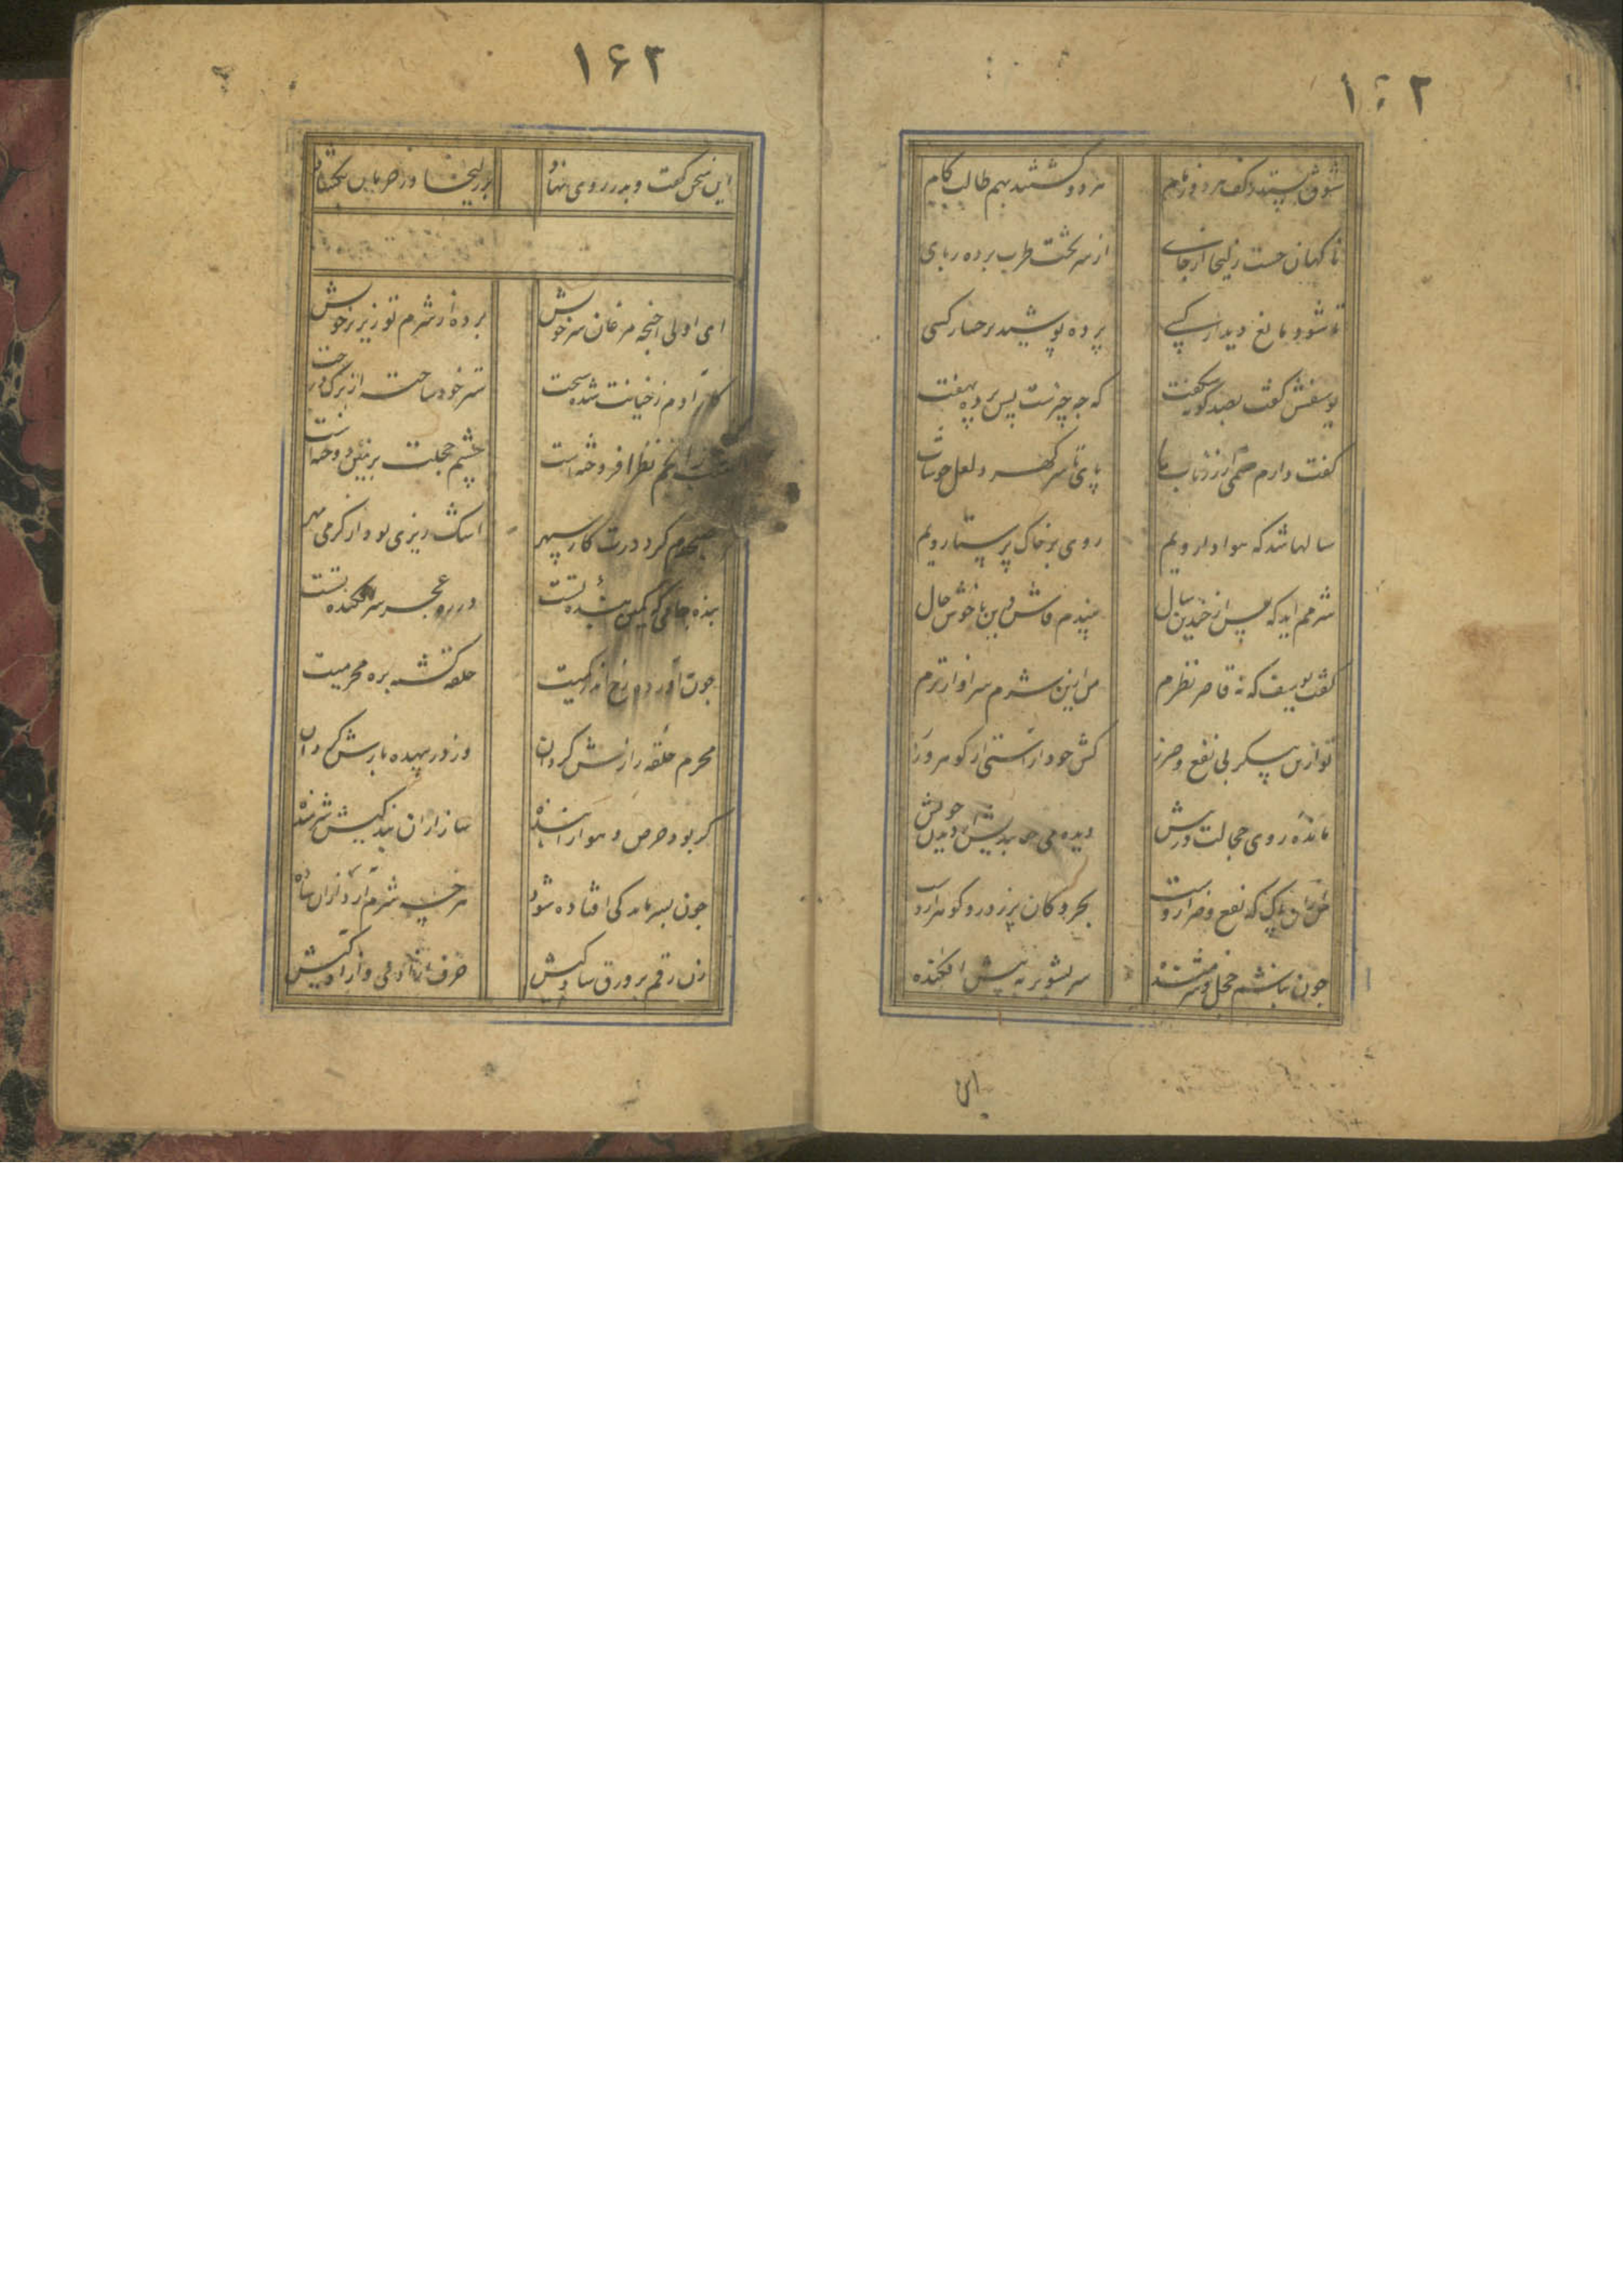 ۱۶۲
شوق بستند ز کف هر دو زمام
هر دو گشتند بهم طالب کام
ناکهان جست زلیخا از جای
از سر تخت طرب برده ربای
تا شود مانع دیدار کسی
پرده پوشید بر حصار کسی
یوسفش کفت بصد کونه شکفت
که چه چیزست پس پرده نهفت
کفت دارم صنمی از زر ناب
پای تا سر کهر و لعل خوشاب
سالها شد که هوادار ویم
روی بر خاک پرستار ویم
شرمم اید که پس از چندین سال
بیندم فاش باین ناخوش حال
کفت یوسف که نه قاصر نظرم
من ازین شرم سزاوارترم
تو ازین پیکر بی نفع و ضرر
کش خود اراستی از کوهر و زر
مانده روی خجالت در پیش
دیده می خوابدیش دیدن خویش
من از آن پاک که نفع و ضر ازوست
بحر و کان پر زر و در و کوهر ازوست
چون نباشم خجل و شرمنده
سر تشویر به پیش افکنده
این
۱۶۲
این سخن کفت و بدر روی نهاد
بر زلیخا در حرمان بکشاد
ای اولی اجنحه مرغان سرخوش
برده از شرم تو زیر پر خویش
کار آدم ز خیانت شده سخت
ستر خود ساخته از برک درخت
شب ز انجم نظر افروخته است
چشم خجلت بزمین دوخته است
صبحدم کرد درت کار سپهر
اشک ریزی بود از کرمی مهر
بنده جامی که کمین بنده تست
در ره عجز سرافکنده تست
چون آورده رخ اندر کمیت
حلقه کشته بره محرمیت
محرم حلقه رازش کردان
وز در بیهده بازش کردان
کر بود حرص و هوا را بنده
ساز از ان بندکیش شرمنده
چون بسر نامه کی افتاده شود
هر چه شرم آرد از ان ساده
زن رقم بر ورق سادکیش
حرف آزادی و آزادکیش